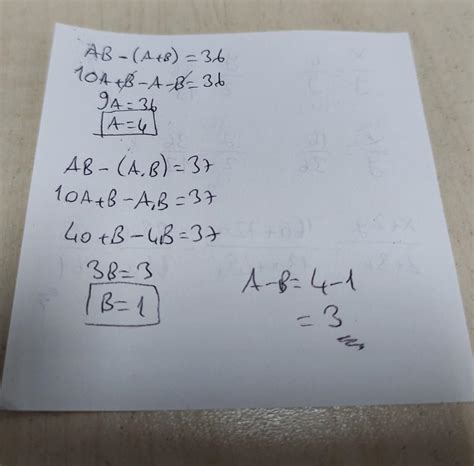 AB-(A+B)=36
10A+B-A-B=36
9A=36
A=4
AB-(A.B)=37
10A+B-A.B=37
40+B-4B=37
3B=3
B=1
A-B=4-1
=3